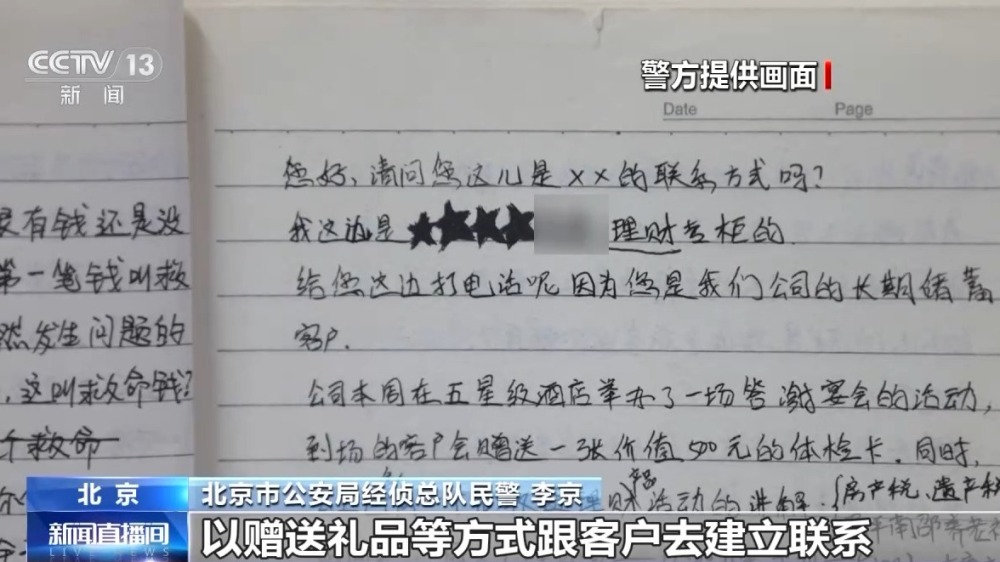 CCTV 13
新闻
警方提供画面
Date Page
您好，请问您这儿是××的联系方式吗？
我这边是
理财专柜的
没有钱还是没
给您这边打电话呢因为您是我们公司的长期储蓄
第一笔钱叫救
客户．
然发生问题的
公司本周在五星级酒店举办了一场答谢宴会的活动，
，这叫救命钱？
到场的客户会赠送一张价值500元的体检卡．同时，
个救命
活动的讲解
房产税、遗产税
北京
北京市公安局经侦总队民警 李京
新闻直播间
LIVE NEWS
以赠送礼品等方式跟客户去建立联系